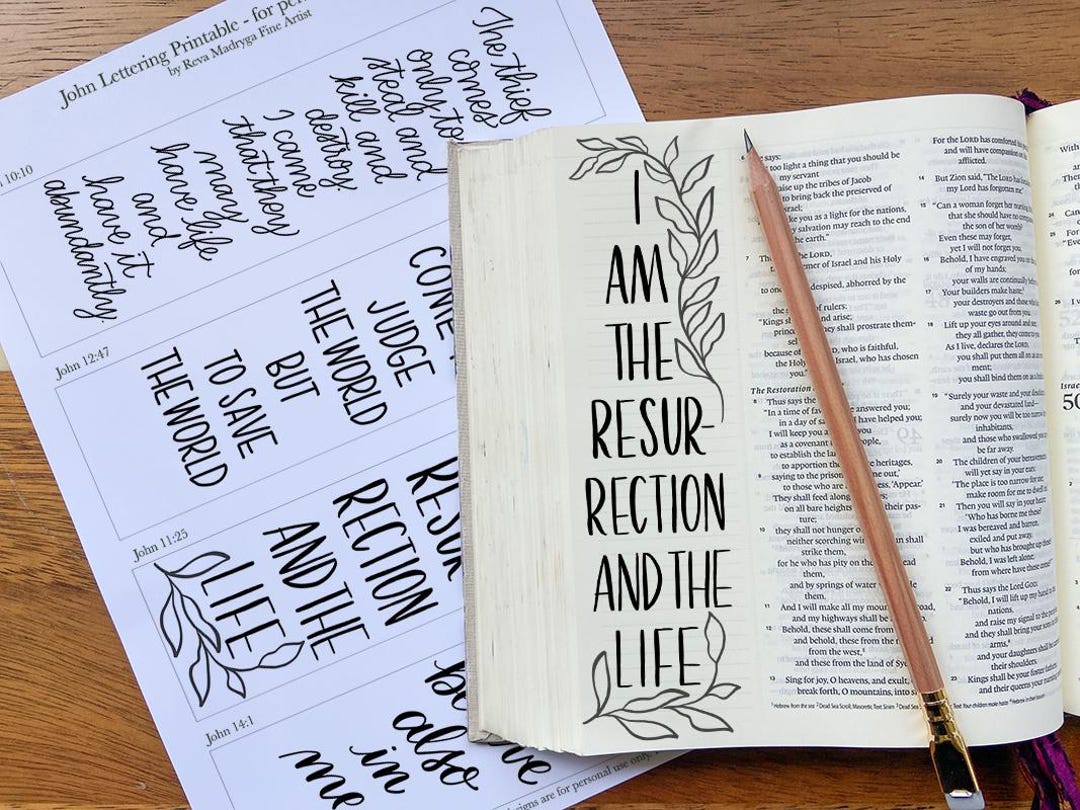 John Lettering Printable - for
by Reva Madryga Fine Artist
10:10
The thief
comes
only to
steal and
kill and
destroy.
I came
that they
may
have life
and
have it
abundantly.
John 12:47
JUDGE
THE WORLD
BUT
TO SAVE
THE WORLD
John 11:25
RESUR
RECTION
AND THE
LIFE
John 14:1
also
in
me
are for personal use only
I
AM
THE
RESUR-
RECTION
AND THE
LIFE
says:
too light a thing that you should be
my servant
raise up the tribes of Jacob
to bring back the preserved of
you as a light for the nations,
salvation may reach to the end
earth."
7 the LORD,
of Israel and his Holy
despised, abhorred by the
of rulers:
"Kings and arise;
they shall prostrate them-
because of who is faithful,
Israel, who has chosen
you."
The Restoration
8 Thus says the
"In a time of answered you;
in a day of have helped you;
I will keep you you
as a covenant people,
to establish the heritages,
to apportion the
9 saying to the out,'
to those who are 'Appear.'
They shall feed along
on all bare heights pas-
ture;
10 they shall not hunger
neither scorching sun shall
strike them,
for he who has pity on
them,
and by springs of water guide
them.
11 And I will make all my road,
and my highways shall be
12 Behold, these shall come from
and behold, these from the
from the west,
and these from the land of
13 Sing for joy, O heavens, and exult,
break forth, O mountains, into
For the LORD has comforted his
and will have compassion on
afflicted.
14 But Zion said, "The LORD has
my Lord has forgotten me."
15 "Can a woman forget her nursing
that she should have no
the son of her womb?
Even these may forget,
yet I will not forget you.
16 Behold, I have engraved you
of my hands;
your walls are continually
17 Your builders make haste;
your destroyers and those who
waste go out from you.
18 Lift up your eyes around and see;
they all gather, they come
As I live, declares the LORD,
you shall put them all on as
ment;
you shall bind them on as
19 "Surely your waste and your
and your devastated land—
surely now you will be too narrow
inhabitants,
and those who swallowed you
be far away.
20 The children of your bereavement
will yet say in your ears:
'The place is too narrow for me;
make room for me to dwell
21 Then you will say in your heart:
'Who has borne me these?
I was bereaved and barren,
exiled and put away,
but who has brought up these?
Behold, I was left alone;
from where have these come?'"
22 Thus says the Lord GOD:
"Behold, I will lift up my hand
nations,
and raise my signal to the
and they shall bring your sons
arms,
and your daughters shall be
their shoulders.
23 Kings shall be your foster
and their queens your nursing